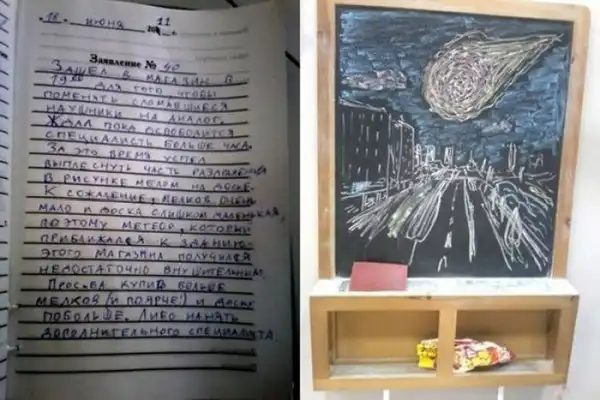 16 июня 2011
Заявление № 40
Зашел в магазин в
19:00 для того чтобы
поменять сломавшиеся
наушники на аналог.
Ждал пока освободится
специалист больше часа.
За это время успел
выплеснуть часть раздражения
в рисунке мелом на доске.
К сожалению, мелков очень
мало и доска слишком маленькая,
поэтому метеор, который
приближался к зданию
этого магазина получился
недостаточно внушительным.
Просьба купить больше
мелков (и поярче) и доску
побольше. Либо нанять
дополнительного специалиста.